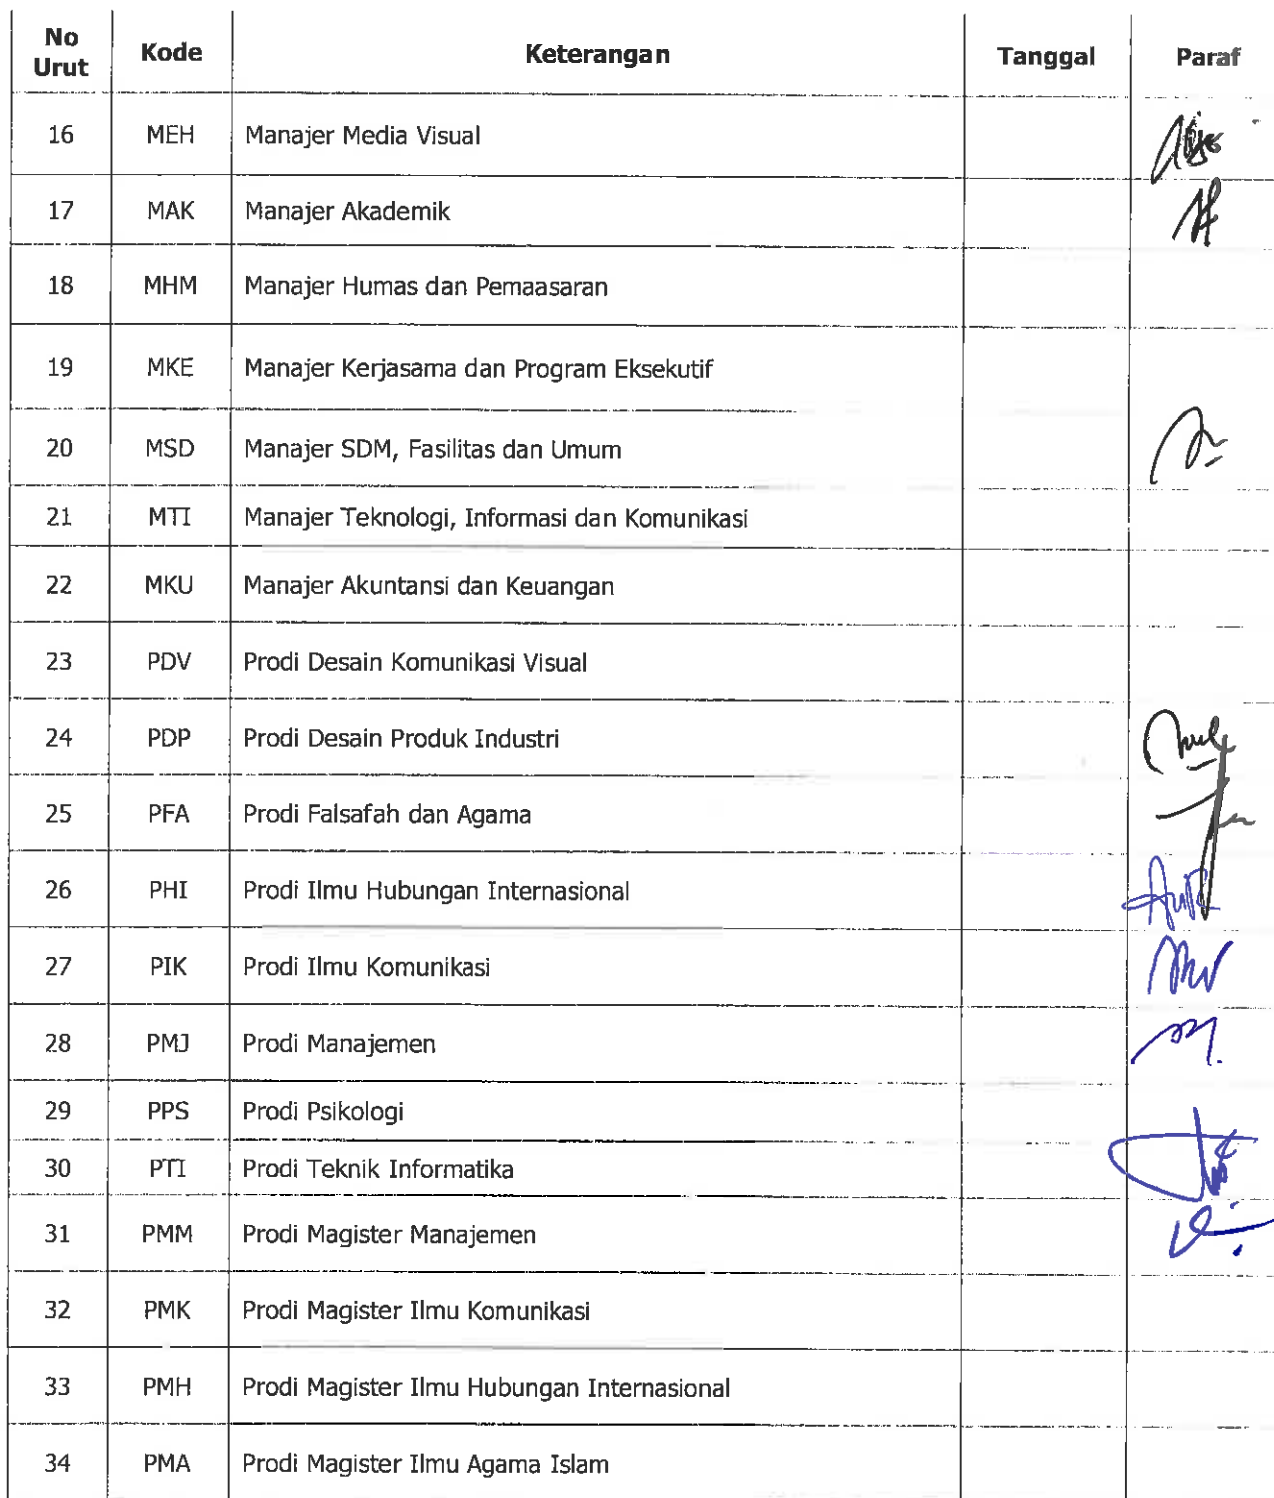 No Urut Kode Keterangan Tanggal Paraf
16 MEH Manajer Media Visual
17 MAK Manajer Akademik
18 MHM Manajer Humas dan Pemaasaran
19 MKE Manajer Kerjasama dan Program Eksekutif
20 MSD Manajer SDM, Fasilitas dan Umum
21 MTI Manajer Teknologi, Informasi dan Komunikasi
22 MKU Manajer Akuntansi dan Keuangan
23 PDV Prodi Desain Komunikasi Visual
24 PDP Prodi Desain Produk Industri
25 PFA Prodi Falsafah dan Agama
26 PHI Prodi Ilmu Hubungan Internasional
27 PIK Prodi Ilmu Komunikasi
28 PMJ Prodi Manajemen
29 PPS Prodi Psikologi
30 PTI Prodi Teknik Informatika
31 PMM Prodi Magister Manajemen
32 PMK Prodi Magister Ilmu Komunikasi
33 PMH Prodi Magister Ilmu Hubungan Internasional
34 PMA Prodi Magister Ilmu Agama Islam